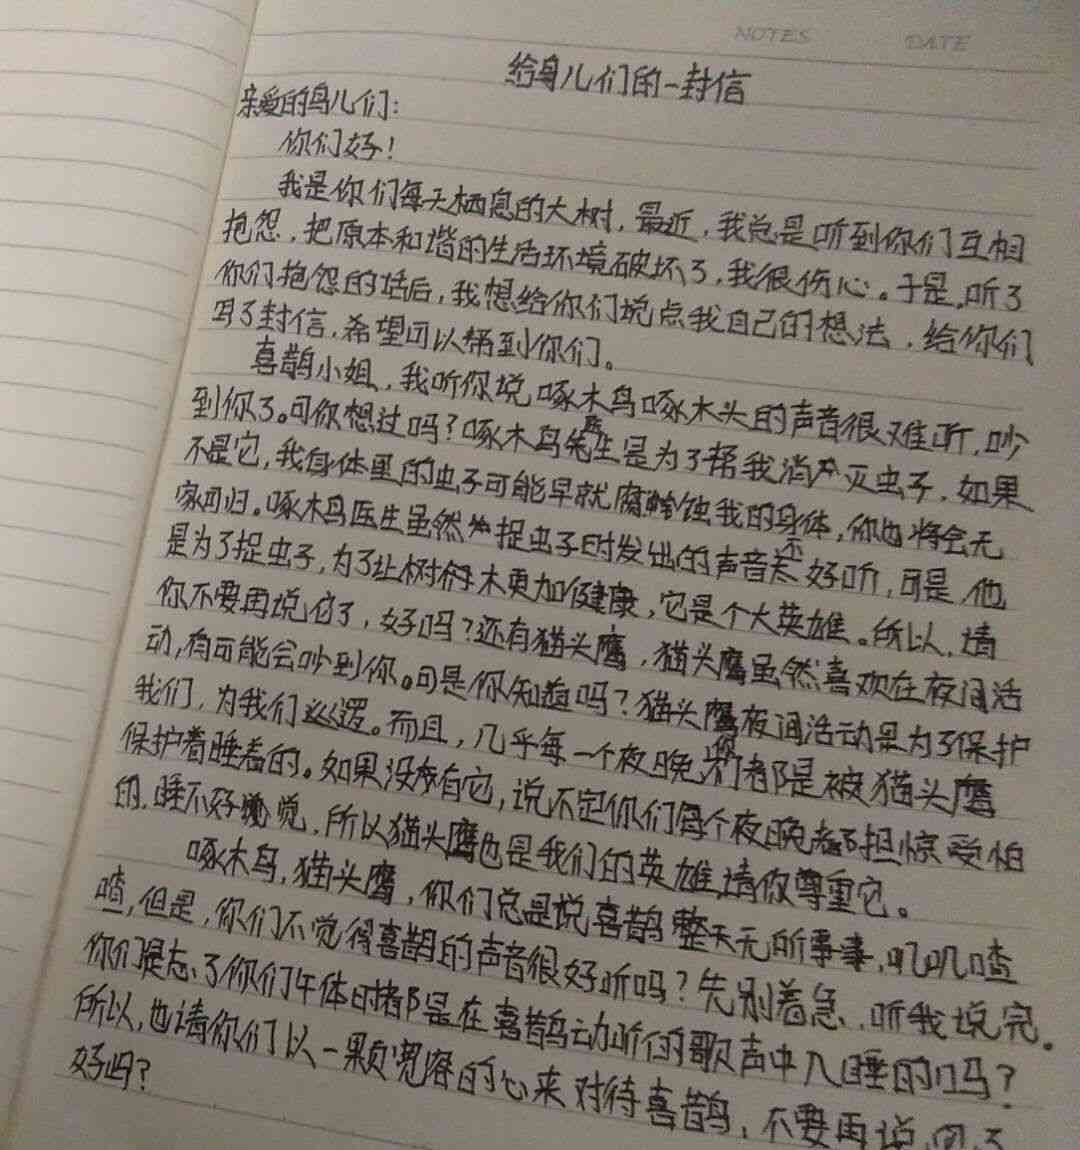 NOTES DATE
给鸟儿们的一封信
亲爱的鸟儿们:
你们好!
我是你们每天栖息的大树,最近,我总是听到你们互相
抱怨,把原本和谐的生活环境破坏了,我很伤心。于是,听了
你们抱怨的话后,我想给你们说点我自己的想法,给你们
写了封信,希望可以帮到你们。
喜鹊小姐,我听你说啄木鸟啄木头的声音很难听,吵
到你了。可你想过吗?啄木鸟医生是为了帮我消灭虫子,如果
不是它,我身体里的虫子可能早就腐蚀我的身体,你也将会无
家可归。啄木鸟医生虽然捉虫子时发出的声音不好听,可是,他
是为了捉虫子,为了让树木更加健康,它是个大英雄。所以,请
你不要再说它了,好吗?还有猫头鹰,猫头鹰虽然喜欢在夜间活
动,有可能会吵到你。可是你知道吗?猫头鹰夜间活动是为了保护
我们,为我们巡逻。而且,几乎每一个夜晚你们都是被猫头鹰
保护着睡着的。如果没有它,说不定你们每个夜晚都担惊受怕
的,睡不好觉,所以猫头鹰也是我们的英雄,请你尊重它。
啄木鸟,猫头鹰,你们总是说喜鹊整天无所事事,叽叽喳
喳,但是,你们不觉得喜鹊的声音很好听吗?先别着急,听我说完。
你们是忘了你们午休时都是在喜鹊动听的歌声中入睡的吗?
所以,也请你们以一颗宽容的心来对待喜鹊,不要再说
好吗?